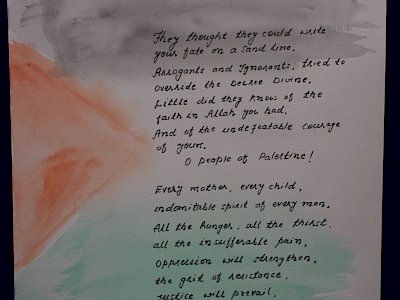 They thought they could write
your fate on a sand line.
Arrogants and Ignorants, tried to
override the Decree Divine.
Little did they know of the
faith in Allah you had,
And of the undefeatable courage
of yours.
O people of Palestine!
Every mother, every child,
indomitable spirit of every man.
All the hunger, all the thirst,
all the insufferable pain,
Oppression will strengthen,
the grit of resistance.
Justice will prevail,